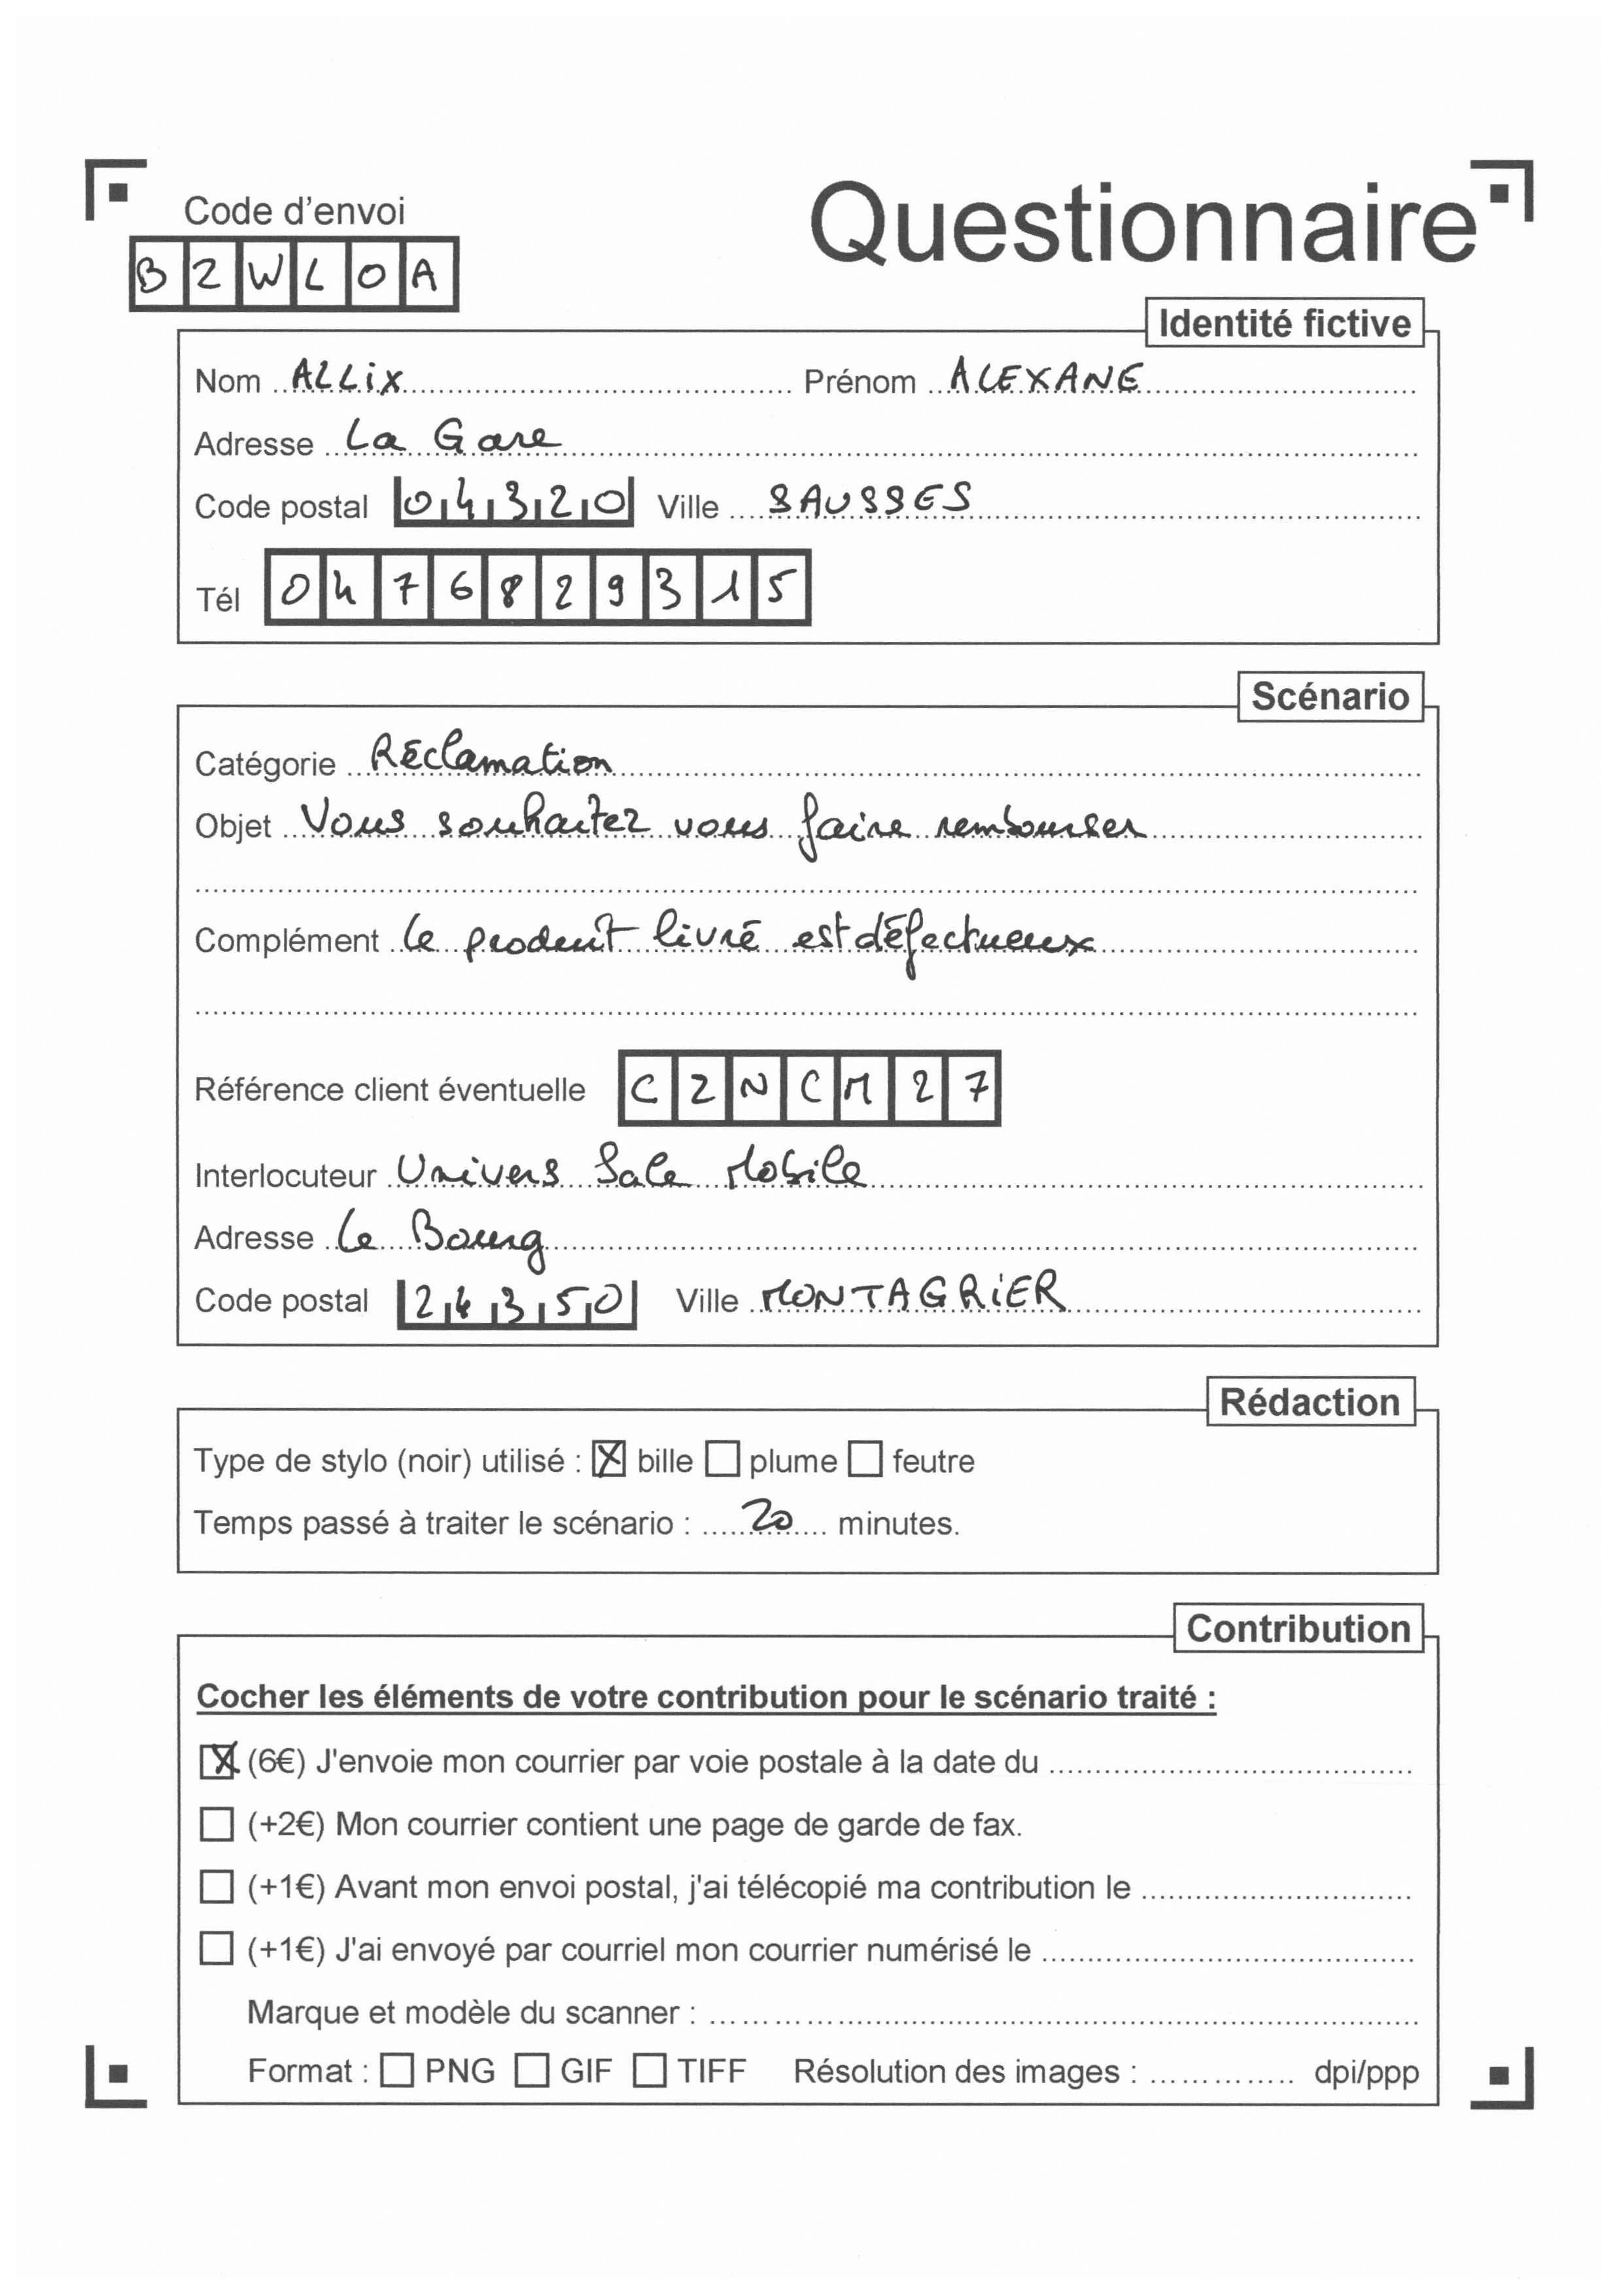 Code d'envoi
Questionnaire
B2WLOA
Identité fictive
Nom ALLiX Prénom ALEXANE
Adresse La Gare
Code postal 04320 Ville SAUSSES
Tél 0476829315
Scénario
Catégorie Réclamation
Objet Vous souhaitez vous faire rembourser
Complément Le produit livré est défectueux
Référence client éventuelle C2NCM27
Interlocuteur Univers Sale Mobile
Adresse Le Bourg
Code postal 24350 Ville MONTAGRiER
Rédaction
Type de stylo (noir) utilisé : ☒ bille ☐ plume ☐ feutre
Temps passé à traiter le scénario : 20 minutes.
Contribution
Cocher les éléments de votre contribution pour le scénario traité :
☒ (6€) J'envoie mon courrier par voie postale à la date du
☐ (+2€) Mon courrier contient une page de garde de fax.
☐ (+1€) Avant mon envoi postal, j'ai télécopié ma contribution le
☐ (+1€) J'ai envoyé par courriel mon courrier numérisé le
Marque et modèle du scanner :
Format : ☐ PNG ☐ GIF ☐ TIFF Résolution des images : dpi/ppp